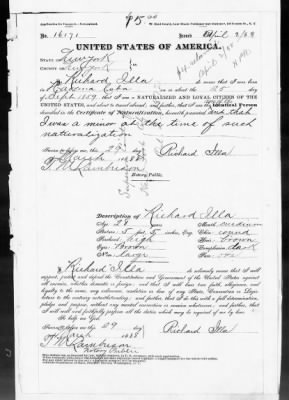 $5.00
No. 16171 Issued April 3/88
UNITED STATES OF AMERICA.
STATE OF New York
COUNTY OF New York
I, Richard Illa do swear that I was born
in Havana Cuba on or about the 25 day
of Sept 1859, that I am a NATURALIZED AND LOYAL CITIZEN OF THE
UNITED STATES, and about to travel abroad; and further, that I am the Identical Person
described in the Certificate of Naturalization, herewith presented and that
I was a minor at the time of such
naturalization
Sworn to before me, this 29 day
of March 1888 Richard Illa
Notary Public.
Description of Richard Illa
Age: 28 years Mouth: medium
Stature: 5 feet 5 inches, Eng. Chin: round
Forehead: high Hair: brown
Eyes: brown Complexion: dark
Nose: large Face:
I, Richard Illa do solemnly swear that I will
support, protect and defend the Constitution and Government of the United States against
all enemies, whether domestic or foreign; and that I will bear true faith, allegiance, and
loyalty to the same, any ordinance, resolution or law of any State, Convention or Legis-
lature to the contrary notwithstanding; and further, that I do this with a full determination,
pledge and purpose, without any mental reservation or evasion whatsoever; and further, that
I will well and faithfully perform all the duties which may be required of me by law.
So help me God.
Sworn to before me, this 29 day
of March 1888 Richard Illa
Notary Public